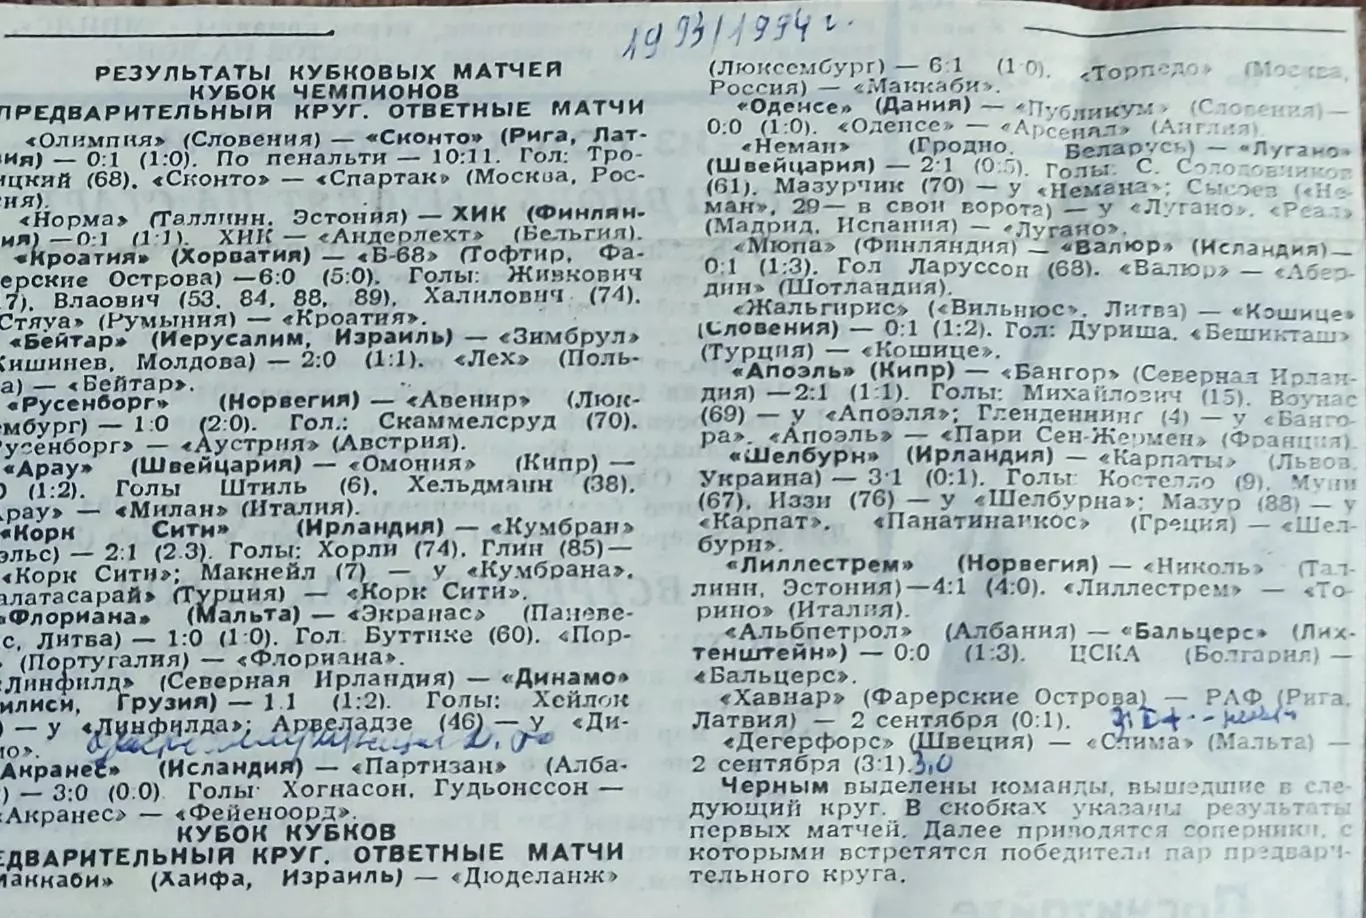 1993/1994 г.
РЕЗУЛЬТАТЫ КУБКОВЫХ МАТЧЕЙ
КУБОК ЧЕМПИОНОВ
ПРЕДВАРИТЕЛЬНЫЙ КРУГ. ОТВЕТНЫЕ МАТЧИ
«Олимпия» (Словения) — «Сконто» (Рига, Лат-
вия) — 0:1 (1:0). По пенальти — 10:11. Гол: Тро-
ицкий (68). «Сконто» — «Спартак» (Москва, Рос-
сия).
«Норма» (Таллинн, Эстония) — ХИК (Финлян-
ия) — 0:1 (1:1). ХИК — «Андерлехт» (Бельгия).
«Кроатия» (Хорватия) — «Б-68» (Тофтир, Фа-
ерские Острова) — 6:0 (5:0). Голы: Живкович
7), Влаович (53, 84, 88, 89), Халилович (74).
Стяуа» (Румыния) — «Кроатия».
«Бейтар» (Иерусалим, Израиль) — «Зимбрул»
Кишинев, Молдова) — 2:0 (1:1). «Лех» (Поль-
а) — «Бейтар».
«Русенборг» (Норвегия) — «Авенир» (Люк-
ембург) — 1:0 (2:0). Гол.: Скаммелсруд (70).
Русенборг» — «Аустрия» (Австрия).
«Арау» (Швейцария) — «Омония» (Кипр) —
0 (1:2). Голы Штиль (6), Хельдманн (38).
Арау» — «Милан» (Италия).
«Корк Сити» (Ирландия) — «Кумбран»
эльс) — 2:1 (2.3). Голы: Хорли (74), Глин (85) —
«Корк Сити»; Макнейл (7) — у «Кумбрана».
алатасарай» (Турция) — «Корк Сити».
«Флориана» (Мальта) — «Экранас» (Паневе-
с, Литва) — 1:0 (1:0). Гол: Буттике (60). «Пор-
» (Португалия) — «Флориана».
«Линфилд» (Северная Ирландия) — «Динамо»
илиси, Грузия) — 1.1 (1:2). Голы: Хейлок
) — у «Линфилда»; Арвеладзе (46) — у «Ди-
мо».
Акранес» (Исландия) — «Партизан» (Алба-
) — 3:0 (0.0). Голы: Хогнасон, Гудьонссон —
«Акранес» — «Фейеноорд».
КУБОК КУБКОВ
ЕДВАРИТЕЛЬНЫЙ КРУГ. ОТВЕТНЫЕ МАТЧИ
Маккаби» (Хаифа, Израиль) — «Дюделанж»
(Люксембург) — 6:1 (1:0). «Торпедо» (Москва,
Россия) — «Маккаби».
«Оденсе» (Дания) — «Публикум» (Словения) —
0:0 (1:0). «Оденсе» — «Арсенал» (Англия).
«Неман» (Гродно, Беларусь) — «Лугано»
(Швейцария) — 2:1 (0:5). Голы: С. Солодовников
(61), Мазурчик (70) — у «Немана»; Сысоев («Не-
ман», 29 — в свои ворота) — у «Лугано». «Реал»
(Мадрид, Испания) — «Лугано».
«Мюпа» (Финляндия) — «Валюр» (Исландия) —
0:1 (1:3). Гол Ларуссон (68). «Валюр» — «Абер-
дин» (Шотландия).
«Жальгирис» («Вильнюс», Литва) — «Кошице»
(Словения) — 0:1 (1:2). Гол: Дуриша. «Бешикташ»
(Турция) — «Кошице».
«Апоэль» (Кипр) — «Бангор» (Северная Ирлан-
дия) — 2:1 (1:1). Голы: Михайлович (15), Воунас
(69) — у «Апоэля»; Гленденнинг (4) — у «Банго-
ра». «Апоэль» — «Пари Сен-Жермен» (Франция).
«Шелбурн» (Ирландия) — «Карпаты» (Львов,
Украина) — 3:1 (0:1). Голы: Костелло (9), Муни
(67), Иззи (76) — у «Шелбурна»; Мазур (88) — у
«Карпат». «Панатинаикос» (Греция) — «Шел-
бурн».
«Лиллестрем» (Норвегия) — «Николь» (Тал-
линн, Эстония) — 4:1 (4:0). «Лиллестрем» — «То-
рино» (Италия).
«Альбпетрол» (Албания) — «Бальцерс» (Лих-
тенштейн») — 0:0 (1:3). ЦСКА (Болгария) —
«Бальцерс».
«Хавнар» (Фарерские Острова) — РАФ (Рига,
Латвия) — 2 сентября (0:1).
«Дегерфорс» (Швеция) — «Слима» (Мальта) —
2 сентября (3:1). 3:0
Черным выделены команды, вышедшие в сле-
дующий круг. В скобках указаны результаты
первых матчей. Далее приводятся соперники, с
которыми встретятся победители пар предвари-
тельного круга.